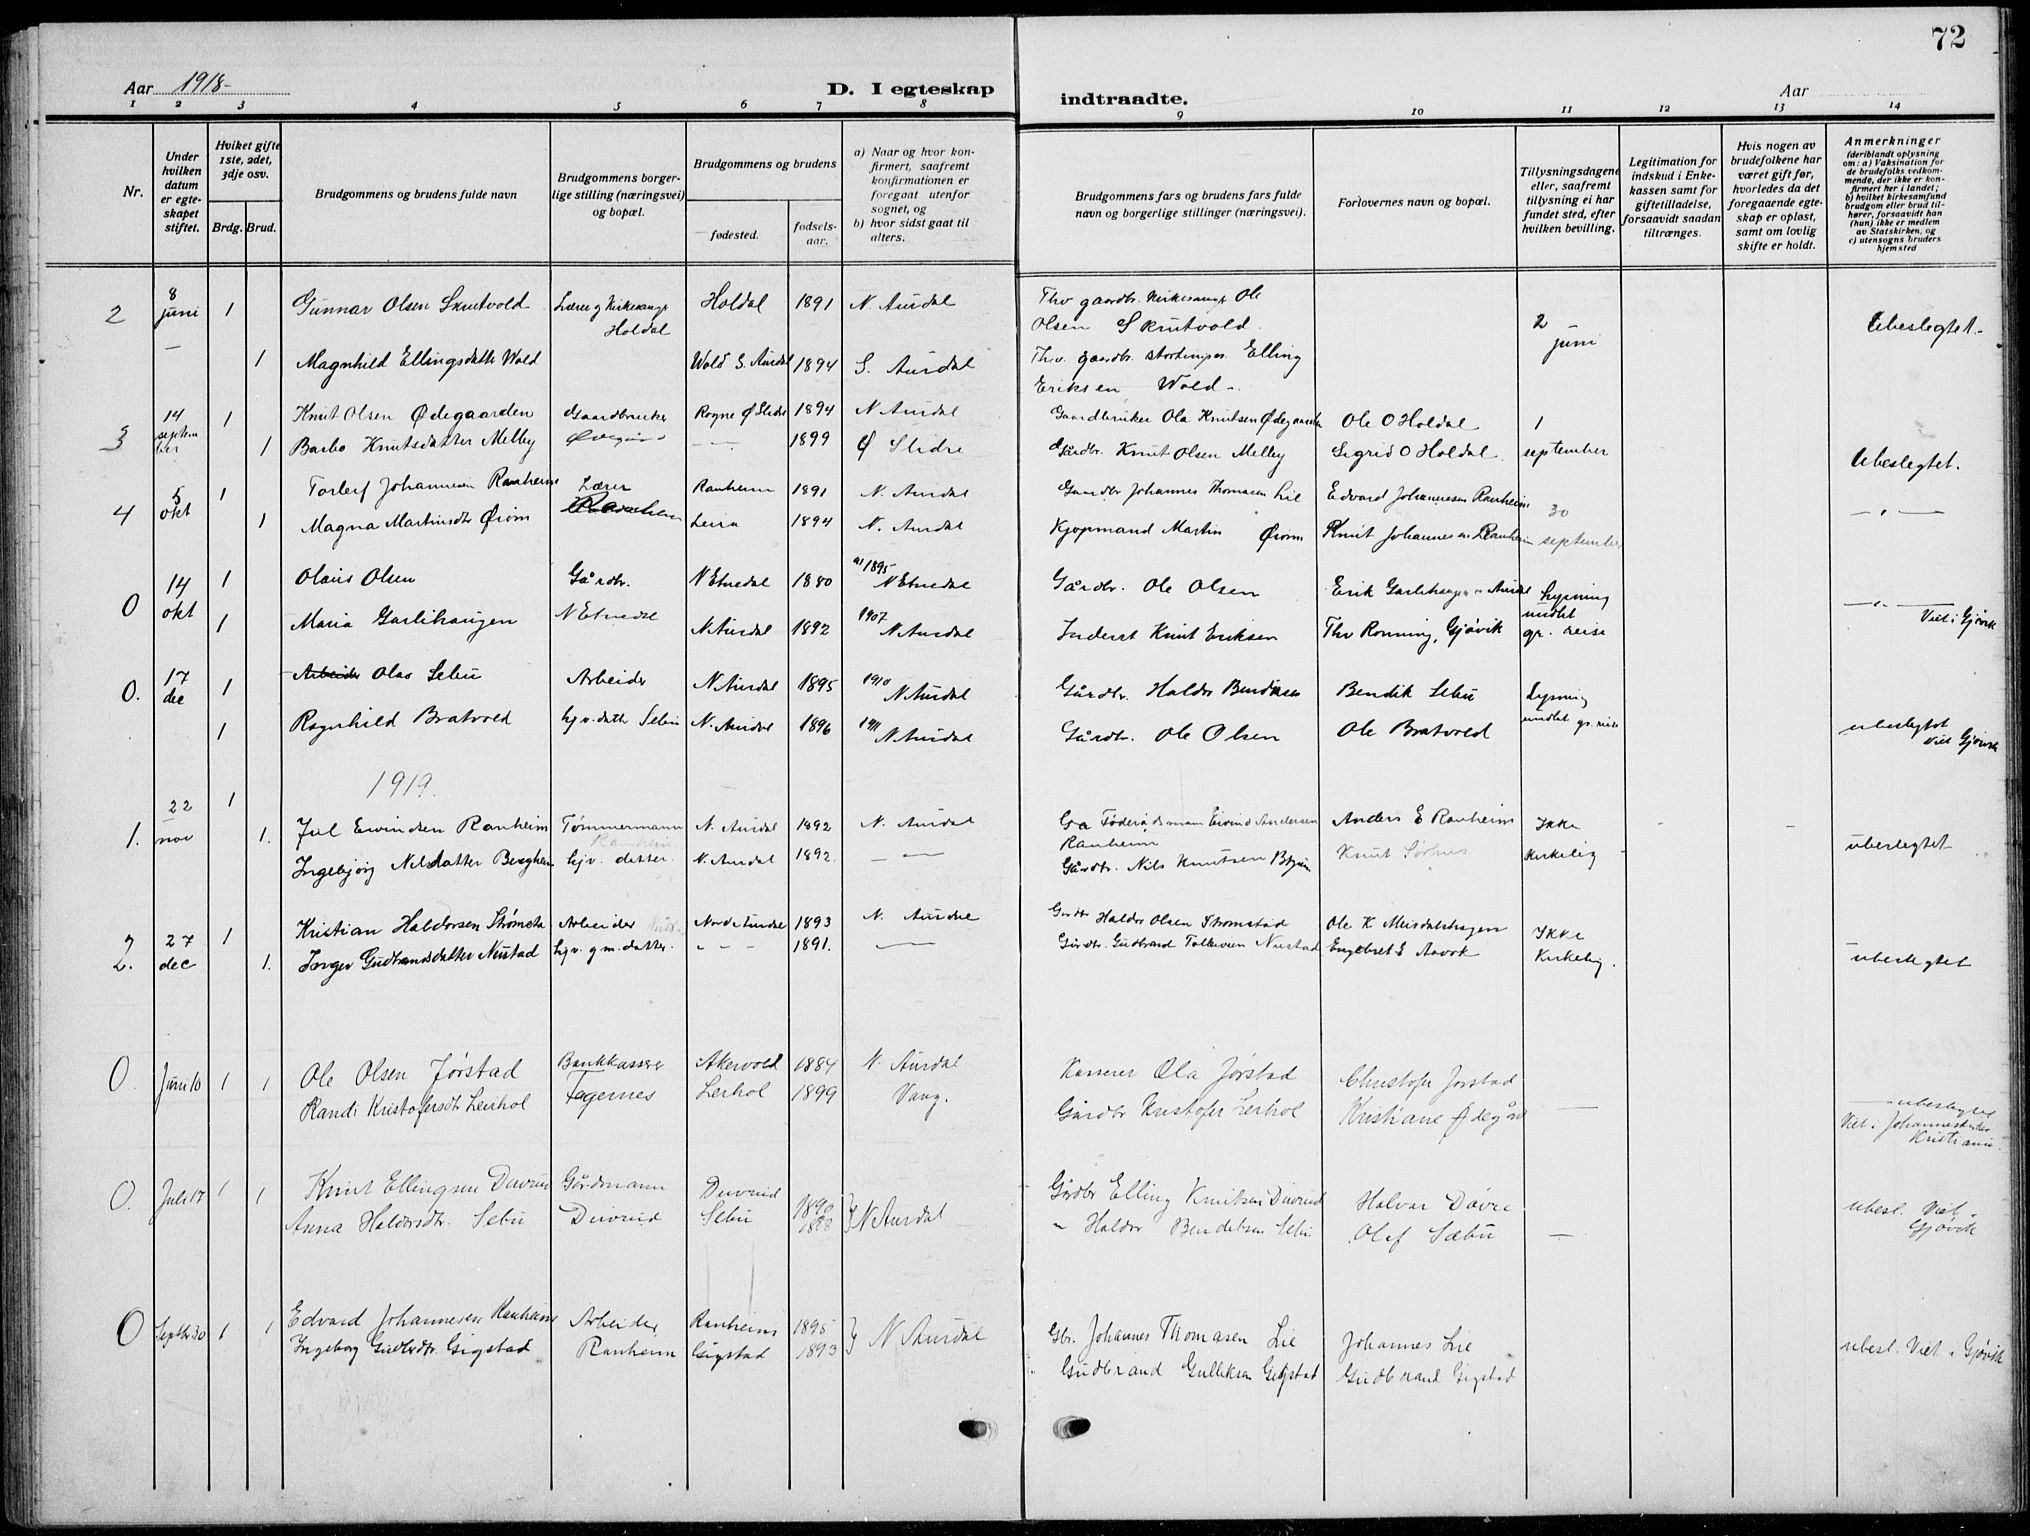 72
Aar 1918-
D. I egteskap
indtraadte.
Aar
1 2 3 4 5 6 7 8 9 10 11 12 13 14
Nr.
Under hvilken datum er egteskapet stiftet.
Hviket gifte 1ste, 2det, 3dje osv.
Brdg. Brud.
Brudgommens og brudens fulde navn
Brudgommens borgerlige stilling (næringsvei) og bopæl.
Brudgommens og brudens
fødested.
fødselsaar.
a) Naar og hvor konfirmert, saafremt konfirmationen er foregaat utenfor sognet, og
b) hvor sidst gaat til alters.
Brudgommens fars og brudens fars fulde navn og borgerlige stillinger (næringsvei).
Forlovernes navn og bopæl.
Tillysningsdagene eller, saafremt tillysning ei har fundet sted, efter hvilken bevilling.
Legitimation for indskud i Enkekassen samt for giftetilladelse, forsaavidt saadan tiltrænges.
Hvis nogen av brudefolkene har været gift før, hvorledes da det foregaaende egteskap er opløst, samt om lovlig skifte er holdt.
Anmerkninger
(deriblandt oplysning om: a) Vaksination for de brudefolks vedkommende, der ikke er konfirmert her i landet; b) hvilket kirkesamfund brudgom eller brud tilhører, forsaavidt han (hun) ikke er medlem av Statskirken, og c) utensogns bruders hjemsted
2 8 juni 1 Gunnar Olsen Skrutvold Lærer og Kirkesanger Holdal Holdal 1891 N. Aurdal Thv gaardbr. Kirkesanger Ole Olsen Skrutvold 2 juni Ubeslegtet.
1 Magnhild Ellingsdatter Wold Wold S. Aurdal 1894 S. Aurdal Thv. gaardbr. stortingsm. Elling Eriksen Wold
3 14 september 1 Knut Olsen Ødegaarden Gaardbruker Rogne Ø Slidre 1894 N Aurdal Gaardbruker Ola Knutsen Ødegaarden Ole O Holdal 1 september
1 Barbo Knutsdatter Melby 1899 Ø Slidre Gårdbr. Knut Olsen Melby Sigrid O Holdal Ubeslegtet.
4 5 okt 1 Torleif Johannesen Ranheim Lærer Ranheim Ranheim 1891 N. Aurdal Gaardbr Johannes Thomasen Lie Edvard Johannesen Ranheim 30 september
1 Magna Martinsdtr Ørom Leira 1894 N. Aurdal Kjøpmand Martin Ørom Knut Johannesen Ranheim — " —
0 14 okt 1 Olaus Olsen Gårdbr. N Etnedal N Etnedal 1880 a) 1895 N Etnedal Gårdbr. Ole Olsen Erik Garlihaugen N Aurdal Lysning undlat gr. reise — " —
1 Maria Garlihaugen N. Aurdal 1892 1907 N. Aurdal Inderst Knut Eriksen Thv Ronning, Gjøvik Viet i Gjøvik
0. 17 dec 1 Arbeider Olav Sebu Arbeider N. Aurdal 1895 1910 N Aurdal Gårdbr. Haldor Bendiksen Bendik Sebu Lysning undlat gr. reise
1 Ragnhild Bratvold gv. datter Sebu N. Aurdal 1896 1911 N Aurdal Gårdbr. Ole Olsen Ole Bratvold ubeslegtet Viet Gjøvik
1919.
1. 22 nov 1 Jul Eivindsen Ranheim Tømmermann Ranheim N. Aurdal 1892 N. Aurdal Føderådsmann Eivind Andersen Ranheim Anders E Ranheim Ikke kirkelig
1. Ingebjørg Nilsdatter Berghem gv. datter. N. Aurdal 1892. — Gårdbr. Nils Knutsen Knut Sørhus ubeslegtet
2. 27 dec 1 Kristian Haldorsen Strømstad Arbeider Nord Aurdal 1893 N. Aurdal Haldor Olsen Strømstad Ole K Meisdalshagen Ikke kirkelig.
1. Inger Gudbrandsdatter Nustad gm. datter. " - - 1891. — Gårdbr. Gudbrand Tollevsen Nustad Engebret E Aavok ubeslegtet
0. Juni 10 1 1 Ole Olsen Jørstad Bankkasserer Fagernes Akervold 1884 N. Aurdal Kasserer Ola Jørstad Christofer Jørstad
Randi Kristofersdtr Leirhol Leirhol 1899 Vang. Gårdbr Kristofer Leirhol Kristiane Ødegård — ubeslegtet Viet i Johanneskirken Kristiania
0. Juli 17 1 1 Knut Ellingsen Duvrud Gårdmann Duvrud Duvrud 1890 N Aurdal Gårdbr Elling Knutsen Duvrud Halvar Døvre
Anna Haldorsdtr. Sebu Sebu 1888 " Haldor Bendiksen Sebu Olaf Sæbu — ubesl. Viet i Gjøvik
0 Septbr 30 1 1 Edvard Johannesen Ranheim Arbeider Ranheim Ranheim 1895 N Aurdal Gbr. Johannes Thomasen Lie Johannes Lie
Ingeborg Gudbrdtr. Gigstad Gigstad 1893 Gudbrand Gulliksen Gigstad Gudbrand Gigstad ubesl. Viet i Gjøvik